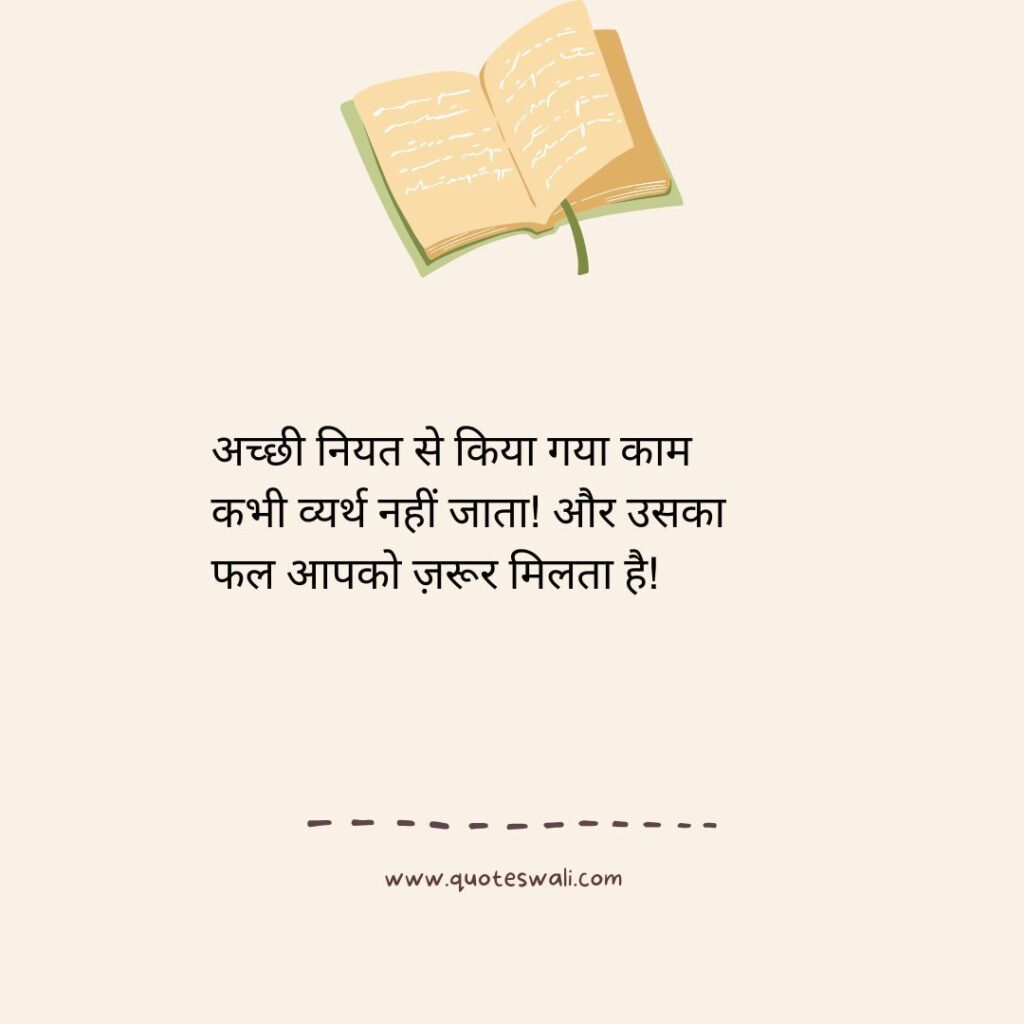 अच्छी नियत से किया गया काम
कभी व्यर्थ नहीं जाता! और उसका
फल आपको ज़रूर मिलता है!
www.quoteswali.com